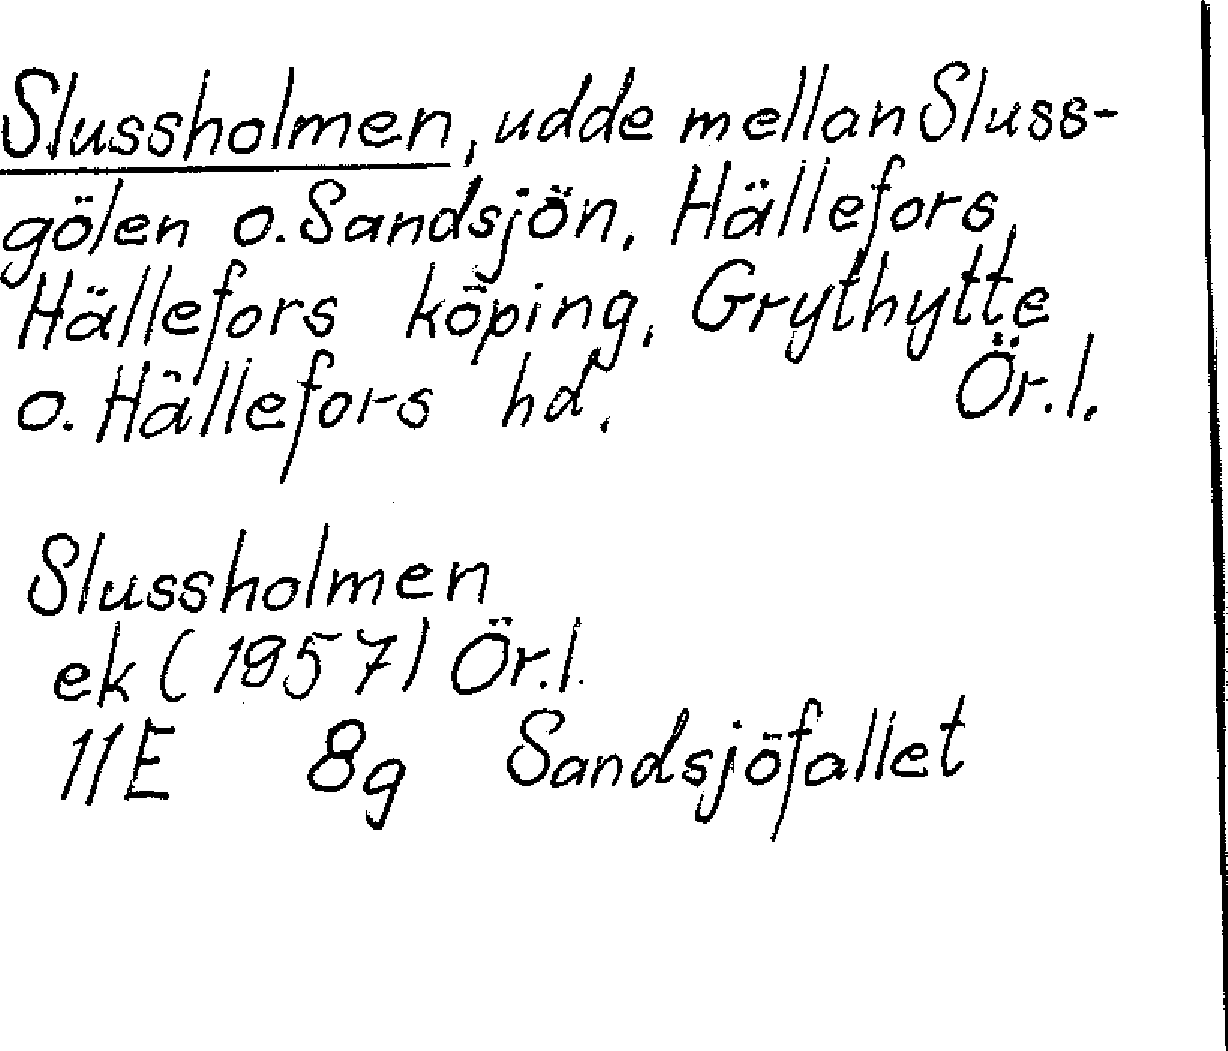 Slussholmen, udde mellan Sluss-
gölen o. Sandsjön, Hällefors,
Hällefors köping, Grythytte
o. Hällefors hd. Ör. l.
Slussholmen
ek (1957) Ör. l.
11E 8g Sandsjöfallet